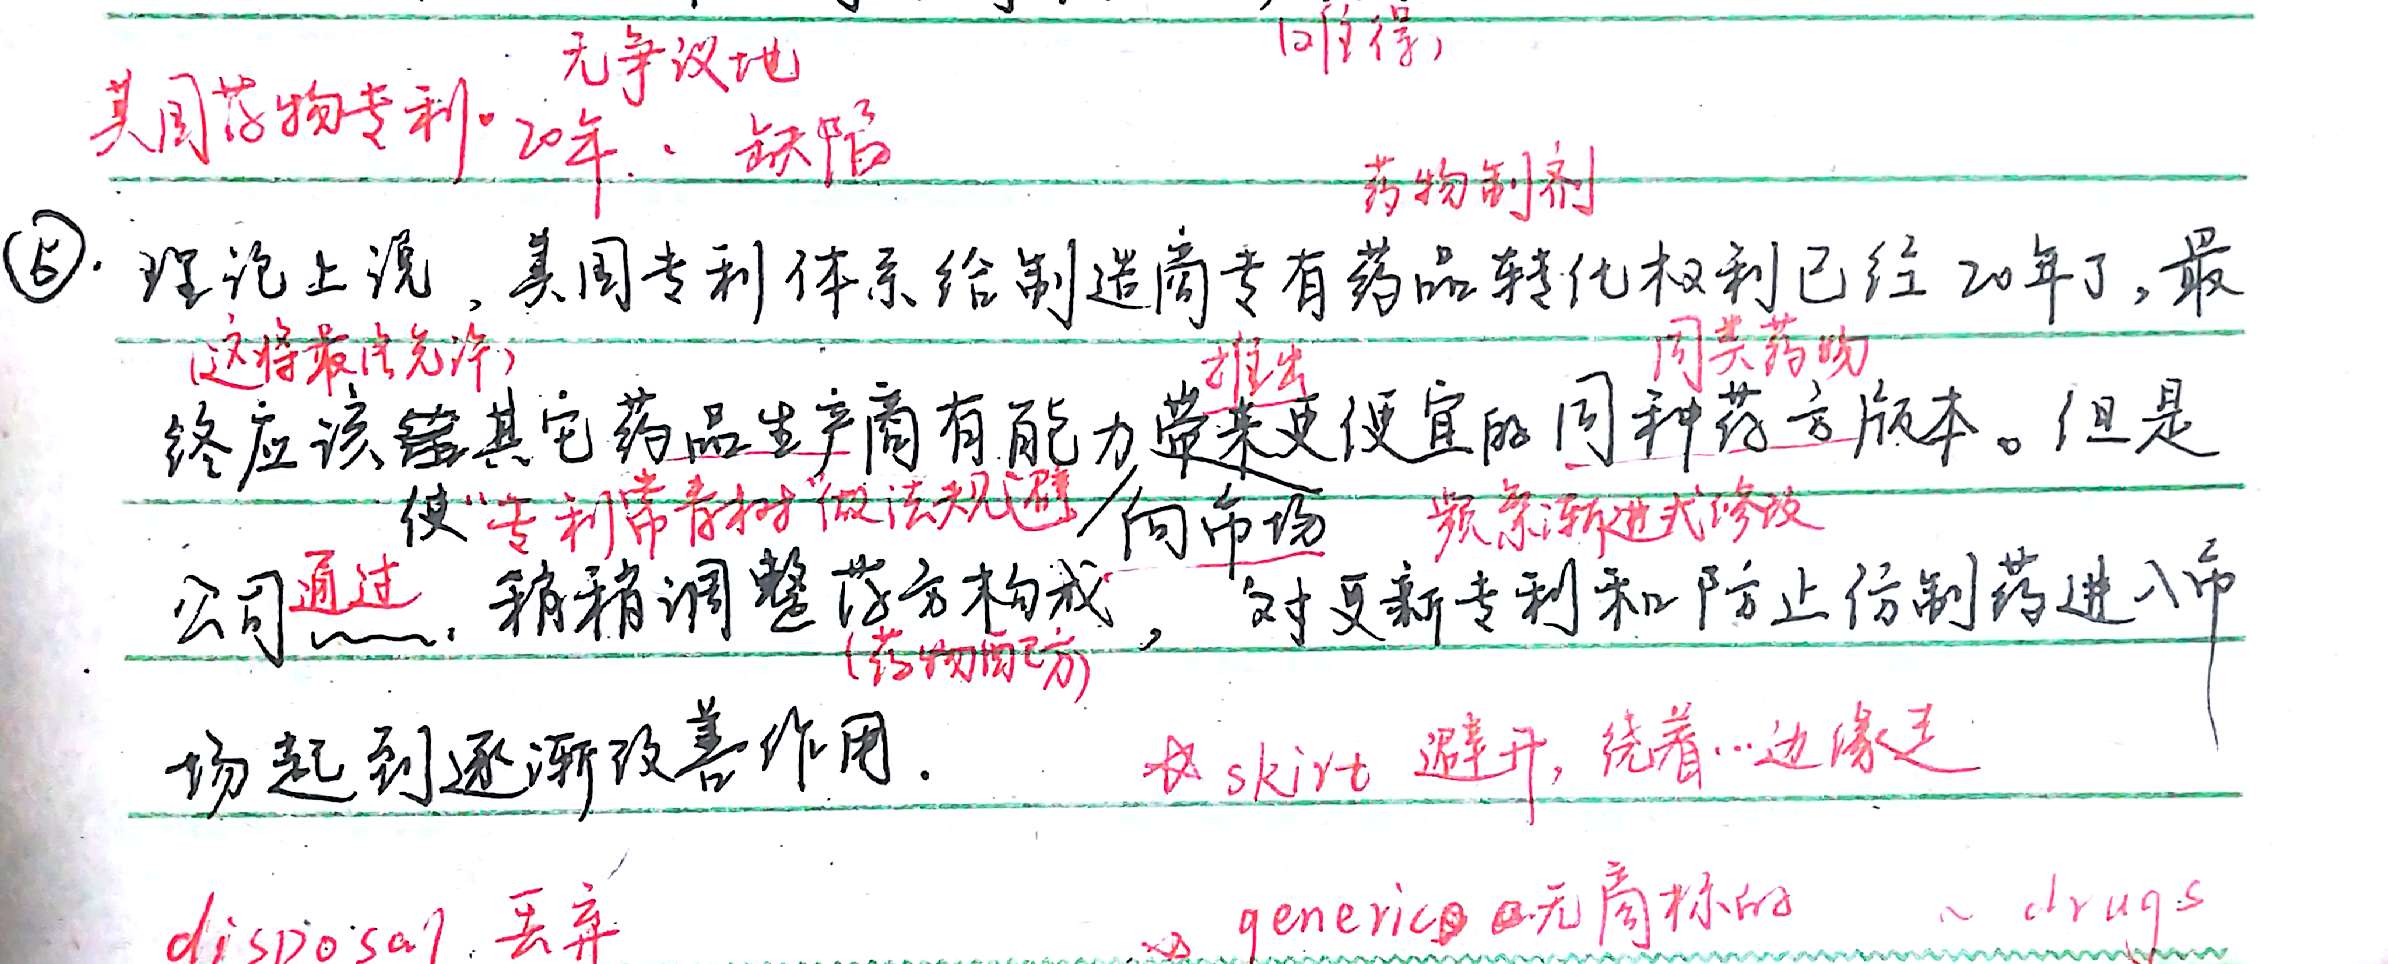 无争议地
美国药物专利·20年. 缺陷
药物制剂
⑤. 理论上说,美国专利体系给制造商专有药品转化权利已经20年了,最
(这将最终允许) 推出 同类药物
终应该其它药品生产商有能力带来更便宜的同种药方版本。但是
使 "专利常青树"做法规避 向市场 频繁渐进式修改
公司通过 稍稍调整药方构成, 对更新专利和防止仿制药进入市
(药物配方)
场起到逐渐改善作用.
☆ skirt 避开, 绕着…边缘走
disposal 丢弃
generic 无商标的 ~ drugs